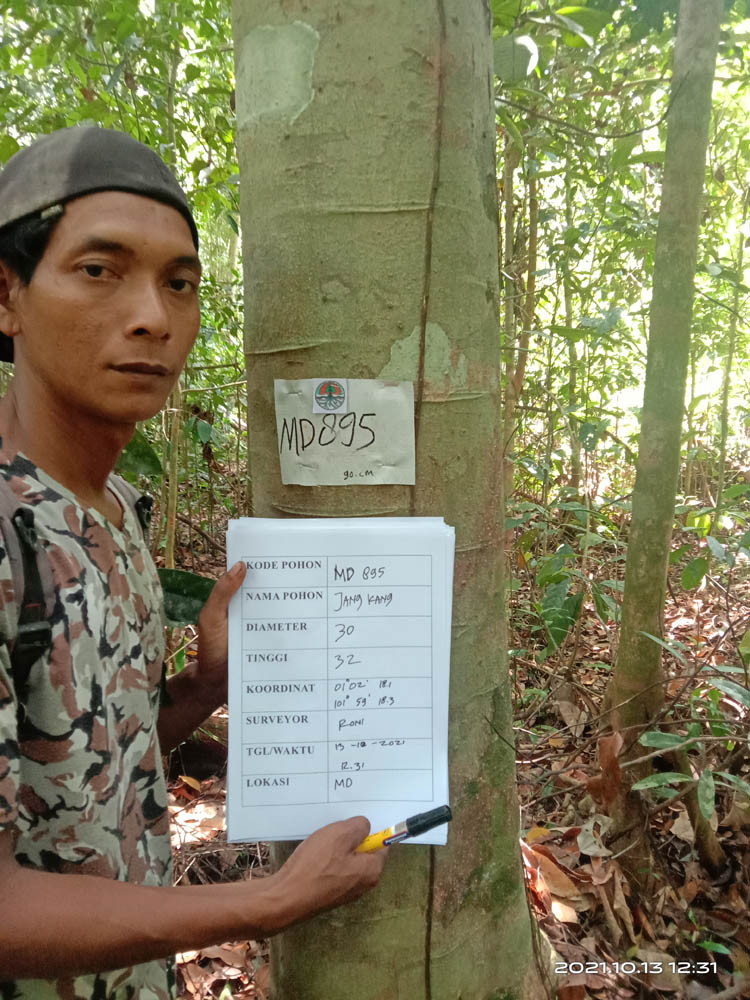 MD895
90.cm
KODE POHON MD 895
NAMA POHON JANG KANG
DIAMETER 30
TINGGI 32
KOORDINAT 01° 02' 18.1
101° 59' 18.3
SURVEYOR RONI
TGL/WAKTU 13 -10 -2021
12.31
LOKASI MD
2021.10.13 12:31